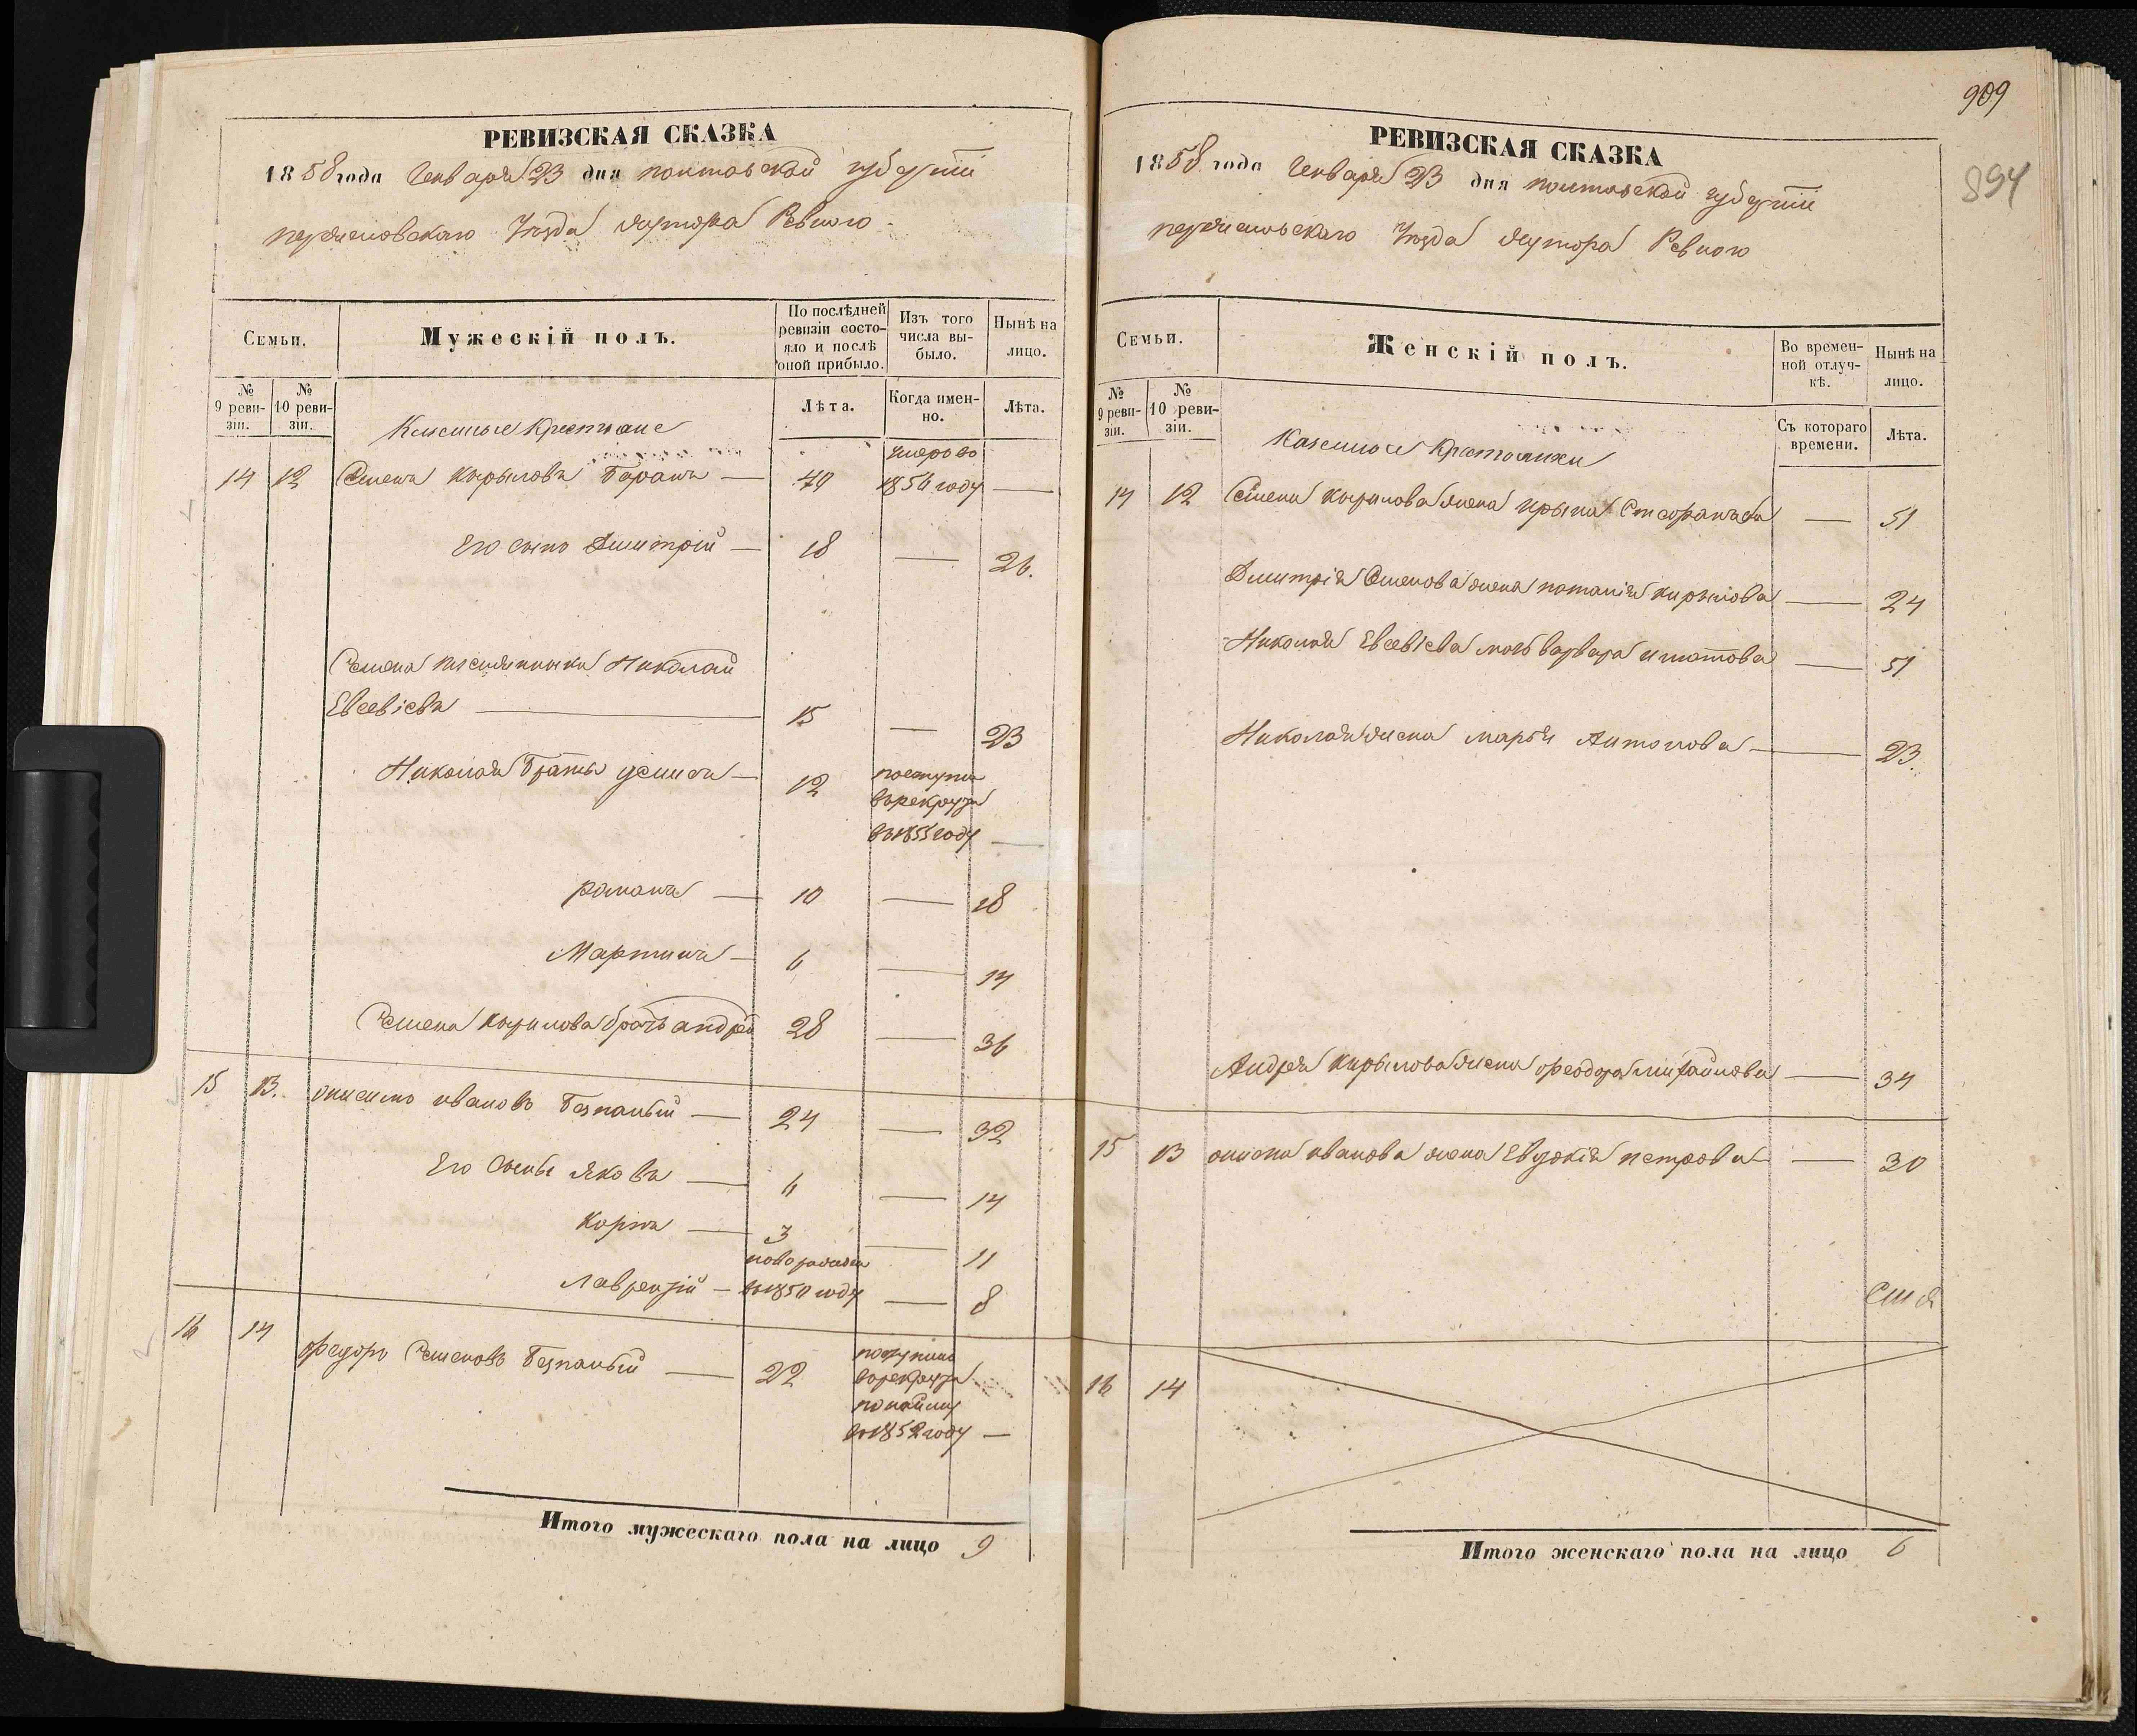 РЕВИЗСКАЯ СКАЗКА
1858 года Генваря 23 дня полтавской губернии
переясловскаго Уезда хутора Ревного
Семьи.
Мужескій полъ.
По послѣдней ревизіи состояло и послѣ оной прибыло.
Изъ того числа выбыло.
Нынѣ на лицо.
№ 9 ревизіи.
№ 10 ревизіи.
Лѣта.
Когда именно.
Лѣта.
Казенные Крестьяне
14 12 Семенъ Кирыловъ Баранъ — 49 умеръ во 1850 году —
Его сынъ Дмитрій — 18 — 26.
Семена племянники Николай
Евсевіевъ — 15 — 23
Николая Братья — 12 поступил
въ рекруты
въ 1855 году —
Романъ — 10 — 18
Мартинъ — 6 — 14
Семена Кирилова братъ андрей 28 — 36
15 13. онисимъ ивановъ Безпалый — 24 — 32
Его Сыны Яковъ — 6 — 14
Карпъ — 3 — 11
Лаврентій — новорожден въ 1850 году — 8
16 14 Федоръ Семеновъ Безпалый — 22 поступил
въ рекруты
по найму
въ 1852 году —
Итого мужескаго пола на лицо 9
909
894
РЕВИЗСКАЯ СКАЗКА
1858 года Генваря 23 дня полтавской губернии
переясловскаго Уезда хутора Ревного
Семьи.
Женскій полъ.
Во временной отлучкѣ.
Нынѣ на лицо.
№ 9 ревизіи.
№ 10 ревизіи.
Съ котораго времени.
Лѣта.
Казенные Крестьянки
14 12 Семена Кирилова жена Ирына — 51
Дмитрія Семенова жена наталія кирылова — 24
Николая Евсевіева мать варвара игнатова — 51
Николая жена марья Антонова — 23.
Андрея Кирылова жена феодора михайлова — 34
15 13 онисима иванова жена Евдокія петрова — 30
16 14
Итого женскаго пола на лицо 6